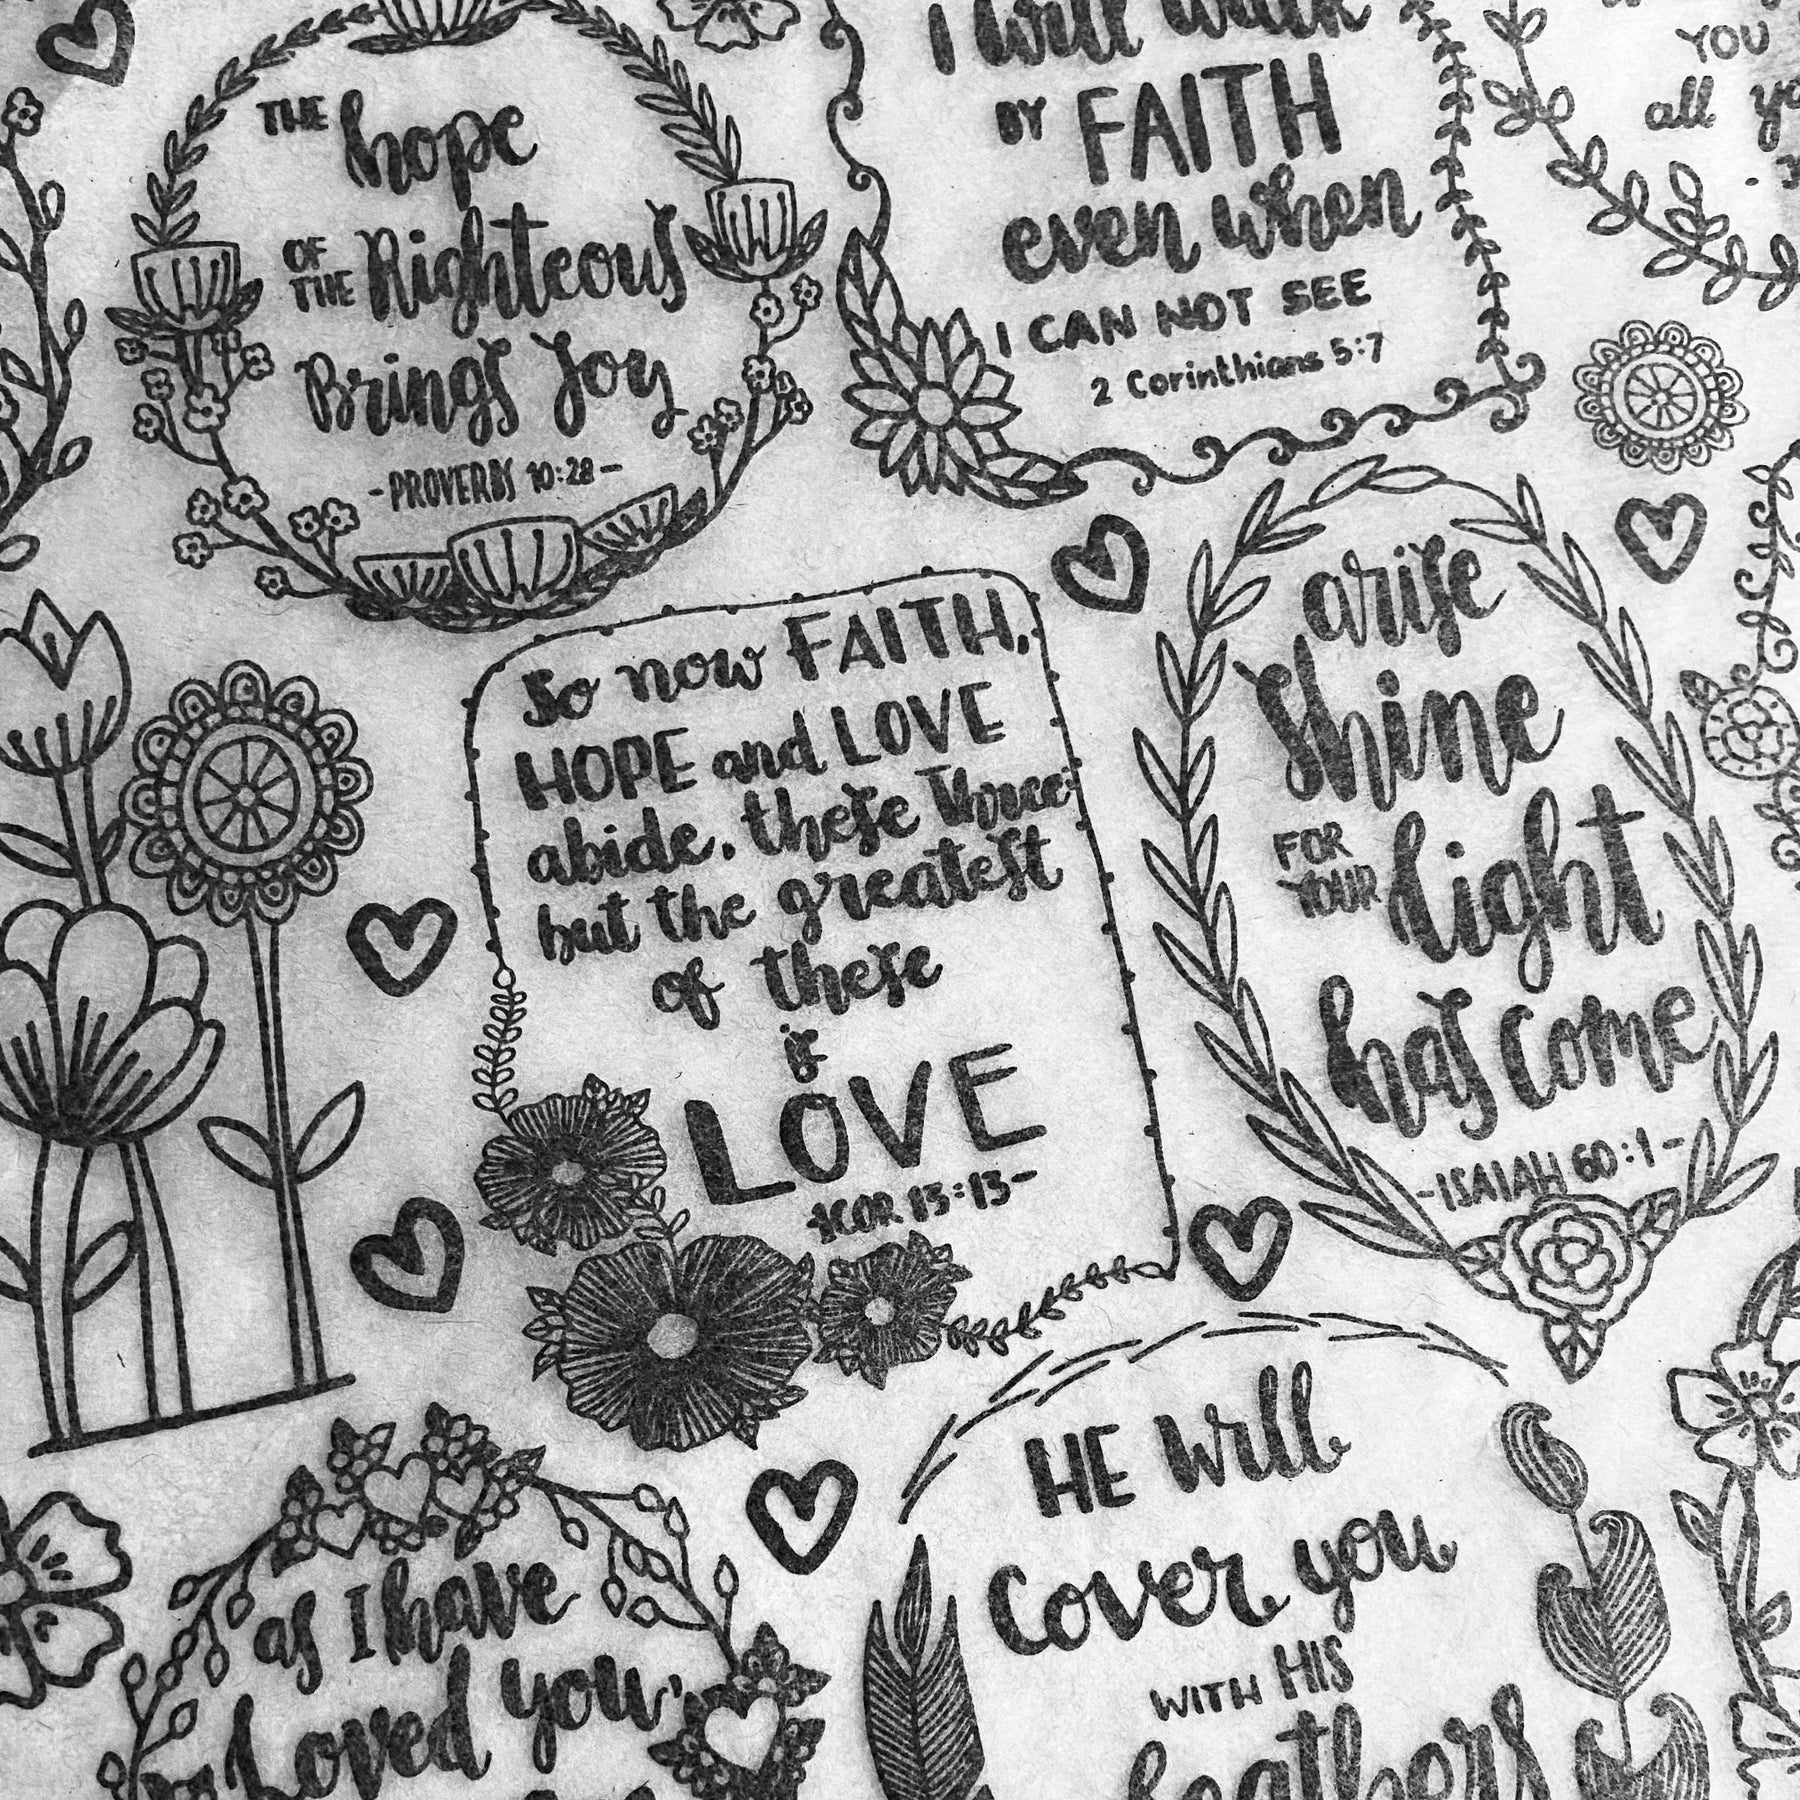 THE hope
OF THE Righteous
Brings Joy
-PROVERBS 10:28-
I will walk
BY FAITH
even when
I CAN NOT SEE
2 Corinthians 5:7
YOU
all
So now FAITH,
HOPE and LOVE
abide, these three
but the greatest
of these
is
LOVE
-1COR 13:13-
arise
Shine
FOR YOUR light
has come
-ISAIAH 60:1-
as I have
Loved you,
HE will
Cover you
WITH HIS
feathers